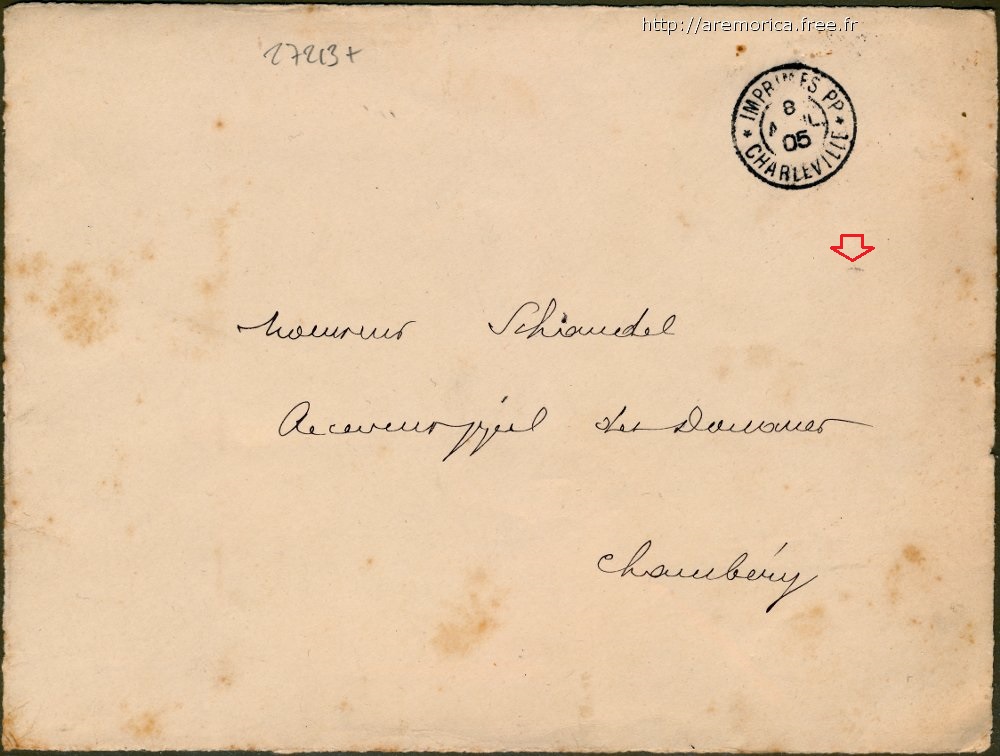 http://aremorica.free.fr
27213+
IMPRIMES PP
8
05
CHARLEVILLE
Monsieur Schiandel
Receveur ppal des Douanes
Chambéry